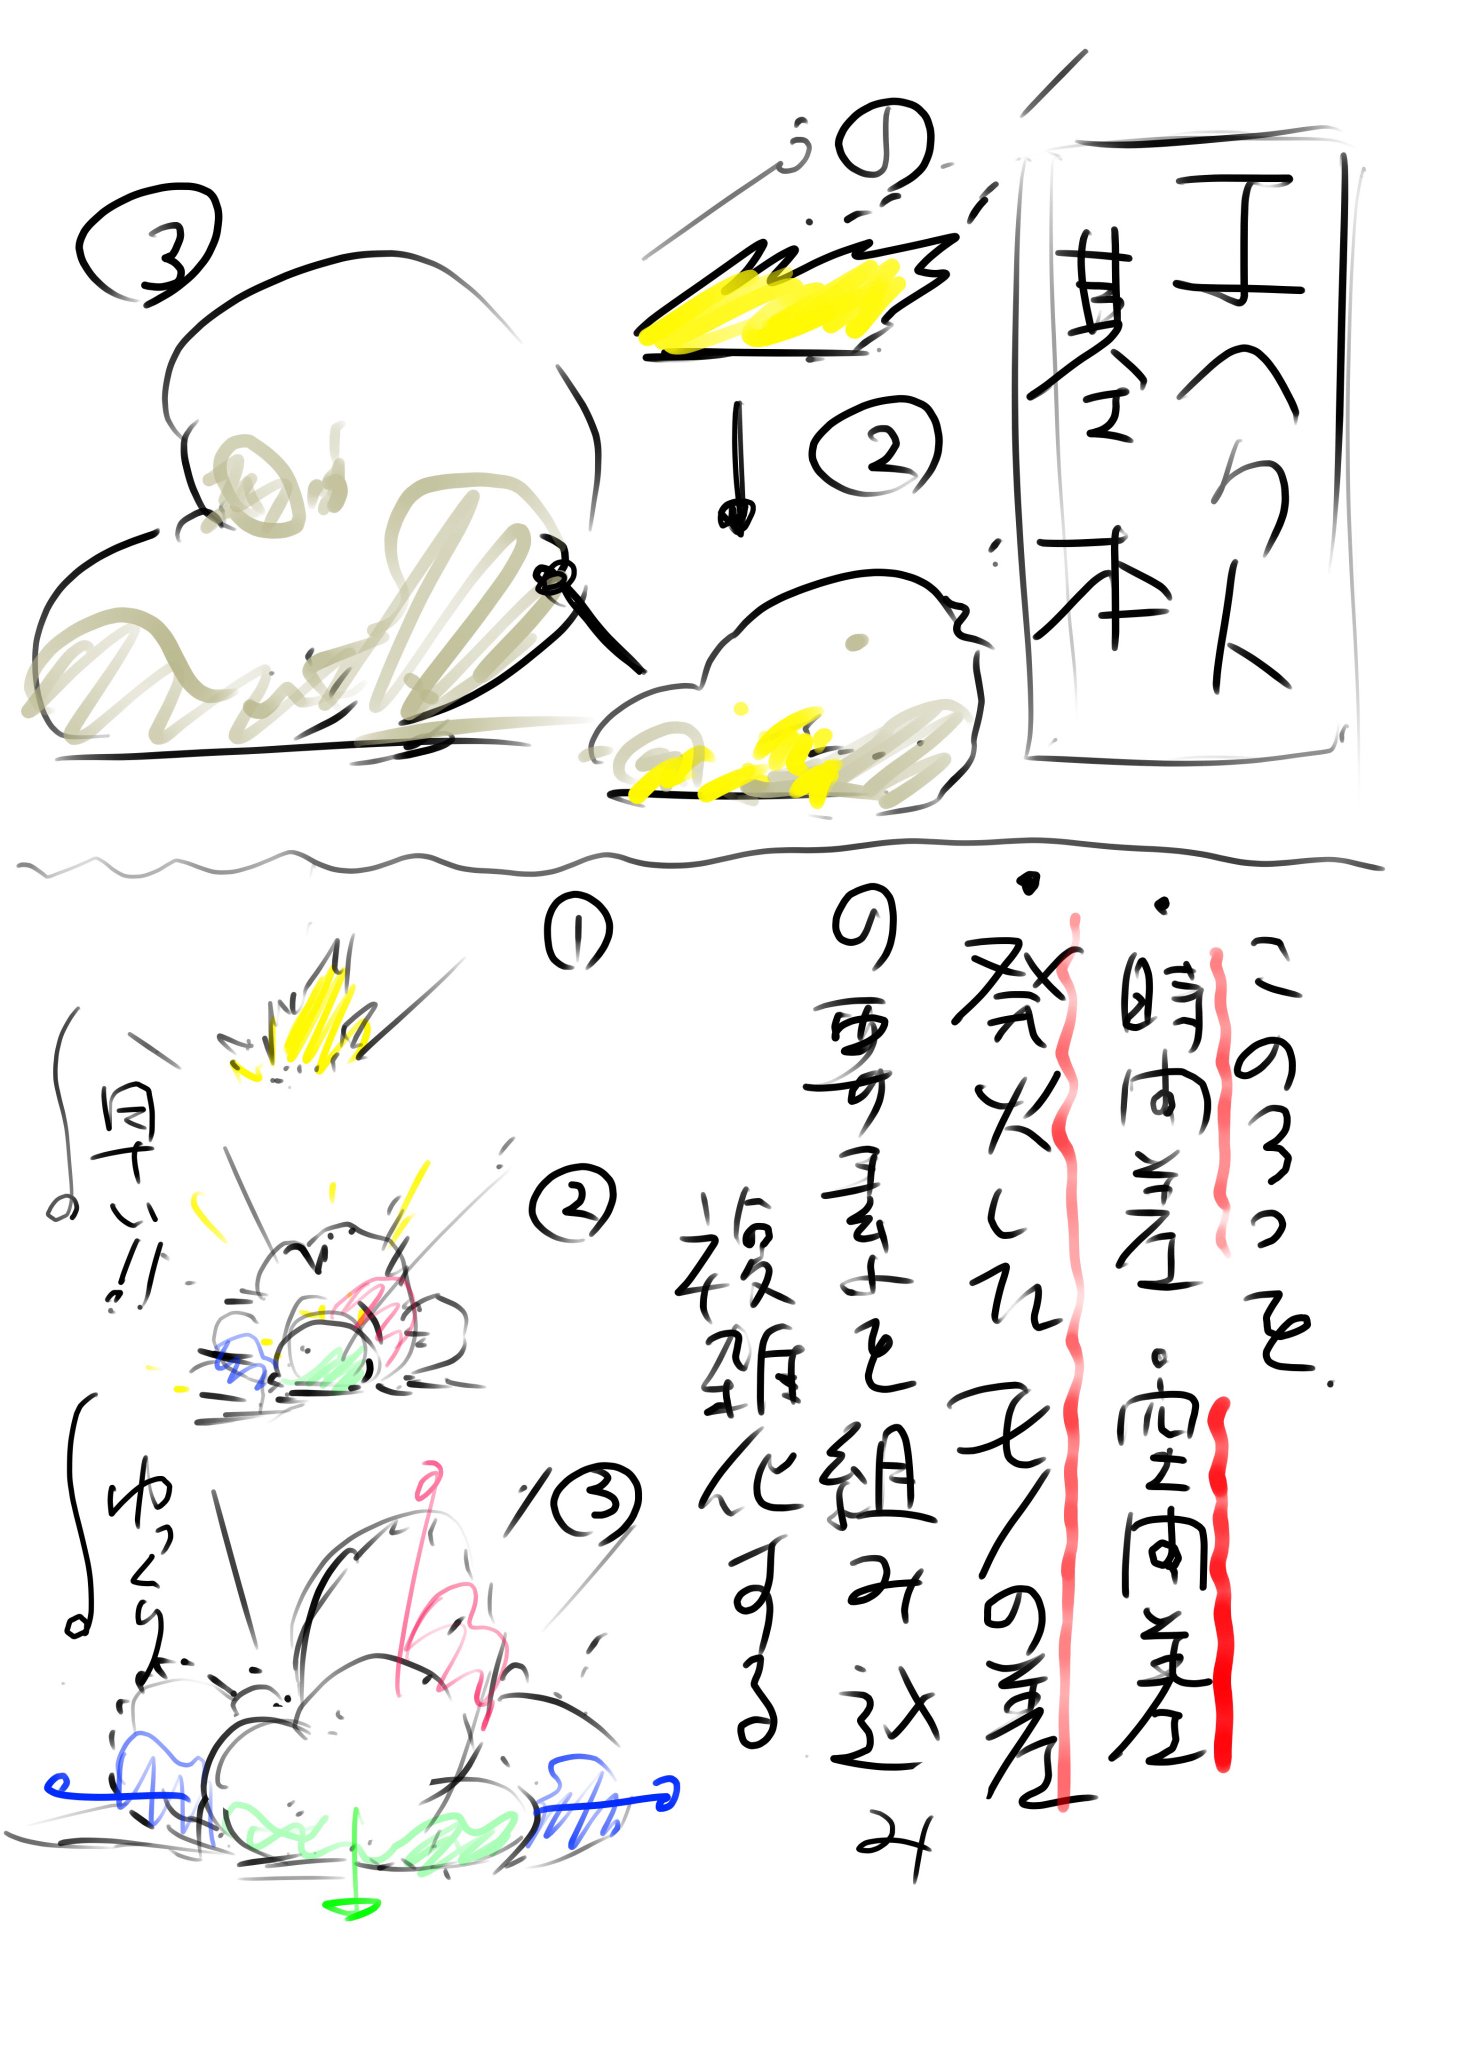 エヘクト
基本
①
②
③
この3つを.
・時間差・空間差
・発火したモノの差
の要素を組み込み
複雑化する
①
②
③
早い!!
ゆっくり